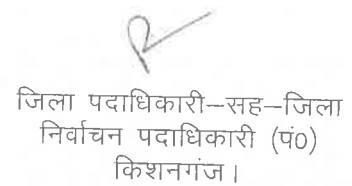 जिला पदाधिकारी–सह–जिला
निर्वाचन पदाधिकारी (पं0)
किशनगंज।